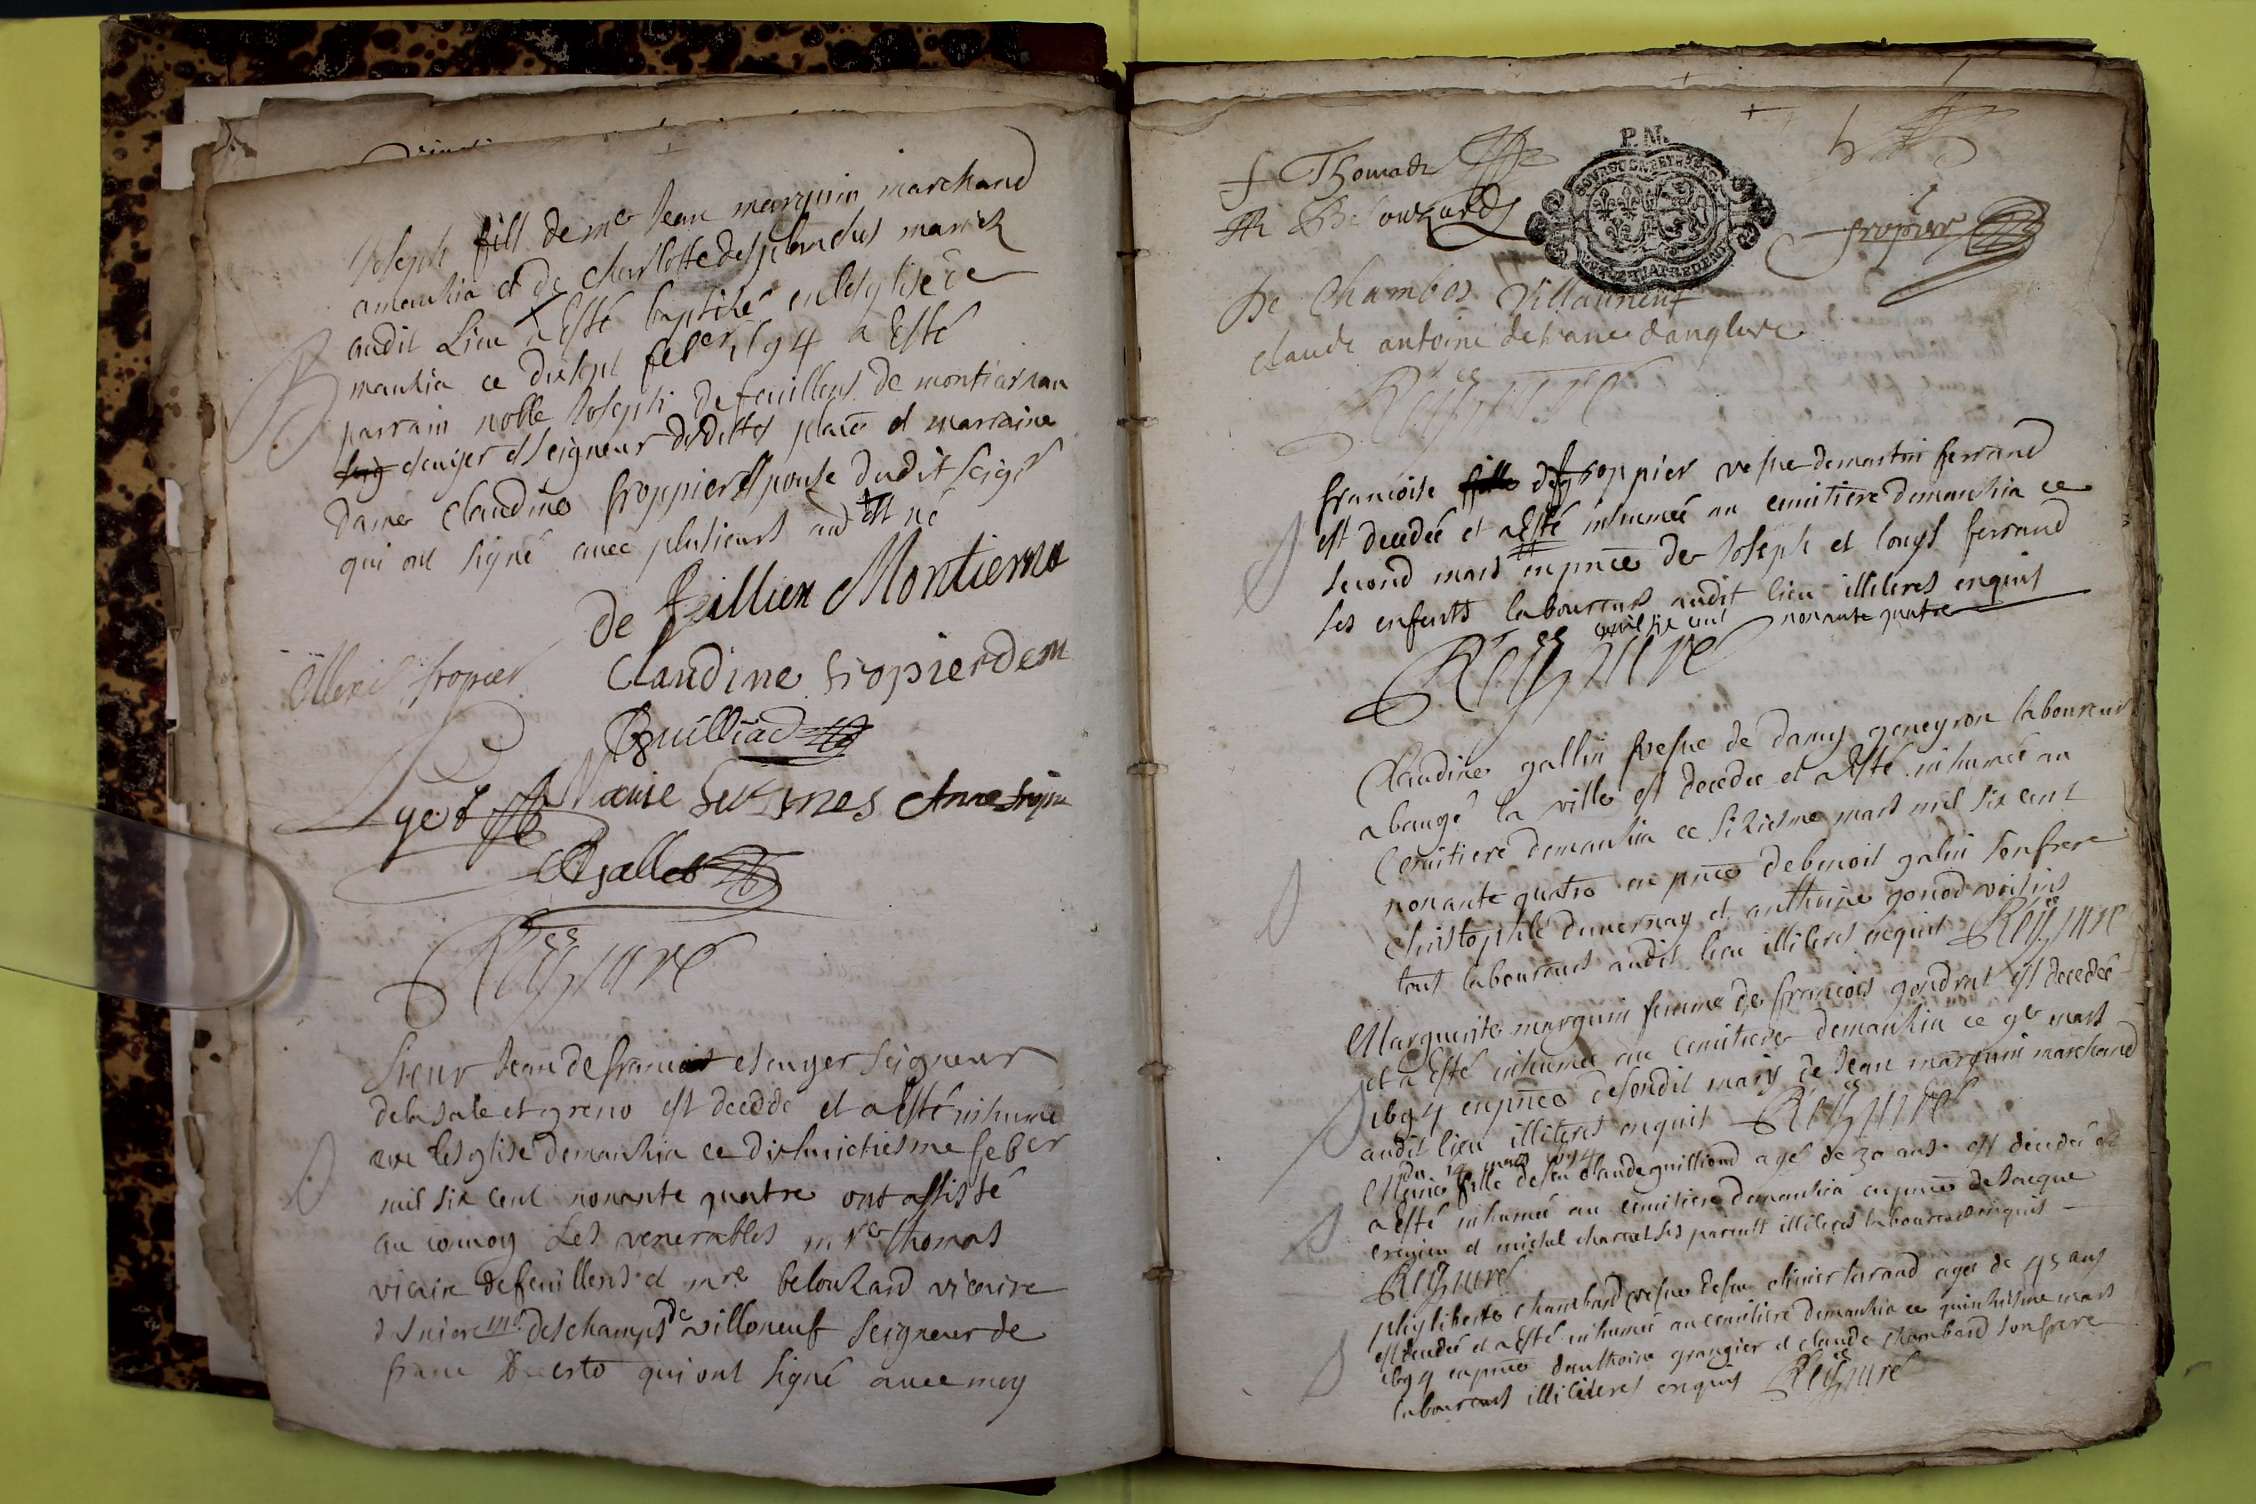 Joseph fill de mr Jean marguin marchand
amanhia et de Charlotte desplanches mariez
audit Lieu a Esté baptisé en lesglise de
manhia ce dixsept feber 1694 a Esté
parrain noble Joseph defeuillens de montiernau
escuyer et seigneur desdittes place et marraine
dame Claudine froppier Espouse dudit seigr
qui ont signé avec plusieurs aud est né
De feillien Montierno
Claudine fropier dem
Allexis fropier
Guilliad
Marie
Anne fropier
Gallet
Reÿ curé
Sieur Jean de francois escuyer seigneur
de la sale et greno est decedé et a Esté inhumé
lesglise demanhia ce dixhuictiesme feber
mil six cent nonante quatre ont assisté
au convoy Les venerables mre thomas
vicaire defeuillens et mre belouzard vicaire
mr deschamps de villoneuf seigneur de
franc qui ont signé avec moy
f Thomas
Belouzard
P.N.
fropier
De Chambos Villauneuf
claude antoine de franc danglure
Reÿ curé
francoise fille defroppier vefve demartin ferrand
est decedée et a Esté inhumée au cemitiere demanhia ce
second mars en pnce de Joseph et louys ferrand
ses enfents laboureurs audit lieu illiteres enquis
mil six cent nonante quatre
Reÿ curé
Claudine gallin vefve de damy geneyron laboureur
abaugé la ville est decedée et a Esté inhumée au
Cemitiere demanhia ce sixiesme mars mil six cent
nonante quatre en pnce debenoit galin son frere
christophle duvernay et anthoine gonod voisins
tous laboureurs audit lieu illiteres enquis Reÿ curé
Marguerite marguin femme de francois gondrat est decedée
et a Esté inhumée au Cemitiere demanhia ce 9e mars
1694 en pnce desondit mary de Jean marguin marchand
audit lieu illiteres enquis Reÿ curé
du 14 mars 1694
Marie fille de feu Claude guilliond agé de 30 ans est decedée et
a Esté inhumée au cemitiere demanhia en pnce de Jacque
et michel charnet ses parents illiteres laboureurs enquis
Reÿ curé
phyliberte chambard vefve defeu olivier farand agée de 45 ans
est decedée et a Esté inhumée au cemitiere demanhia ce quinziesme mars
1694 en pnce danthoine grangier et claude chambard son frere
laboureurs illiteres enquis Reÿ curé